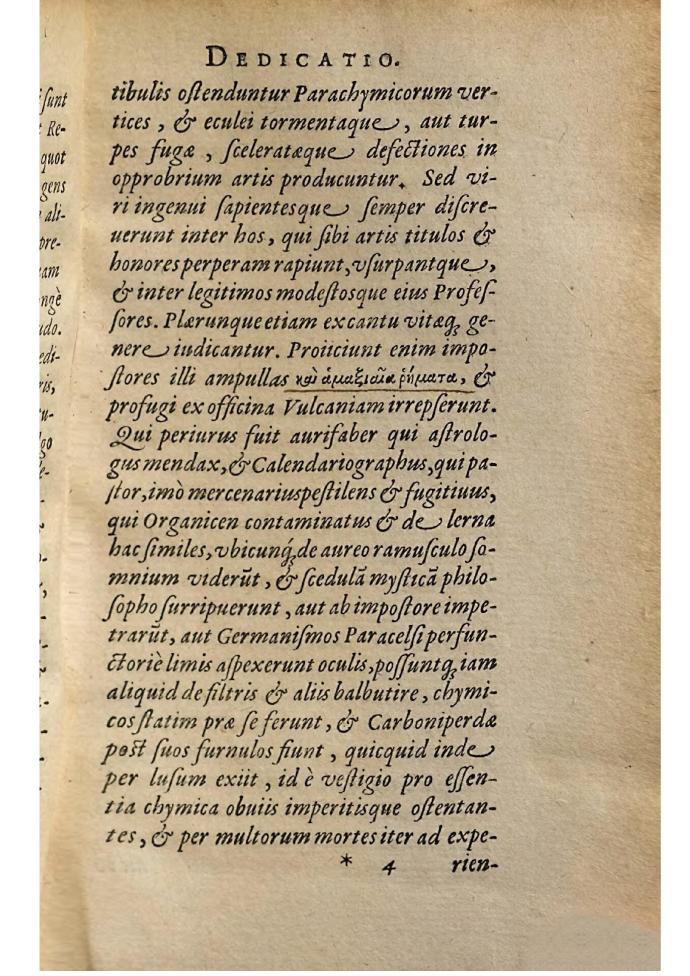 DEDICATIO.
tibulis ostenduntur Parachymicorum ver-
tices, & eculei tormentaque, aut tur-
pes fugæ, scelerateæque defectiones in
opprobrium artis producuntur. Sed vi-
ri ingenui sapientesque semper discre-
uerunt inter hos, qui sibi artis titulos &
honores perperam rapiunt, vsurpantque,
& inter legitimos modestosque eius Profes-
sores. Plærunque etiam ex cantu vitæq; ge-
nere iudicantur. Proiiciunt enim impo-
stores illi ampullas καὶ ἁμαξιαῖα ῥήματα, &
profugi ex officina Vulcaniam irrepserunt.
Qui periurus fuit aurifaber qui astrolo-
gus mendax, & Calendariographus, qui pa-
stor, imò mercenarius pestilens & fugitiuus,
qui Organicen contaminatus & de lerna
hac similes, vbicunq́; de aureo ramusculo so-
mnium viderũt, & scedulã mysticã philo-
sopho surripuerunt, aut ab impostore impe-
trarũt, aut Germanismos Paracelsi perfun-
ctoriè limis aspexerunt oculis, possuntq; iam
aliquid de filtris & aliis balbutire, chymi-
cos statim præ se ferunt, & Carboniperdæ
post suos furnulos fiunt, quicquid inde
per lusum exiit, id è vestigio pro essen-
tia chymica obuiis imperitisque ostentan-
tes, & per multorum mortes iter ad expe-
* 4 rien-
sunt
Re-
quot
gens
ali-
pre-
am
ngè
udo.
edi-
ris,